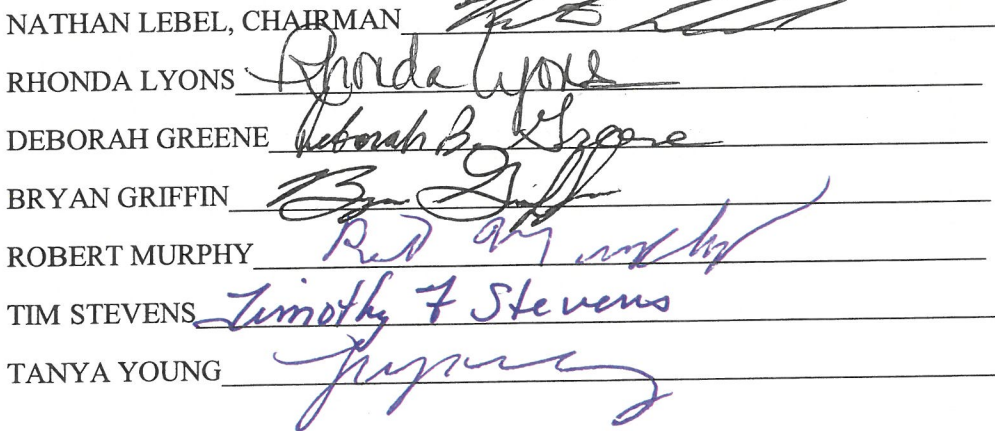 NATHAN LEBEL, CHAIRMAN
RHONDA LYONS Rhonda Lyons
DEBORAH GREENE Deborah B. Greene
BRYAN GRIFFIN Bryan Griffin
ROBERT MURPHY Murphy
TIM STEVENS Timothy F Stevens
TANYA YOUNG